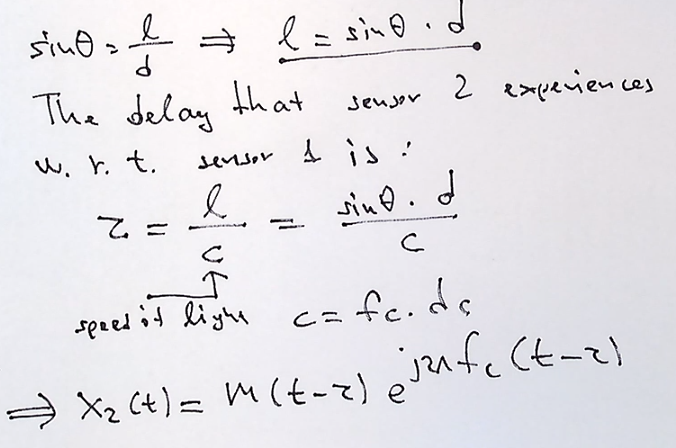 sinθ = l/d ⇒ l = sinθ · d
The delay that sensor 2 experiences
w. r. t. sensor 1 is :
τ = l/c = sinθ · d / c
speed of light c = fc · dc
⇒ x₂(t) = m(t-τ) e^{j2πfc(t-τ)}